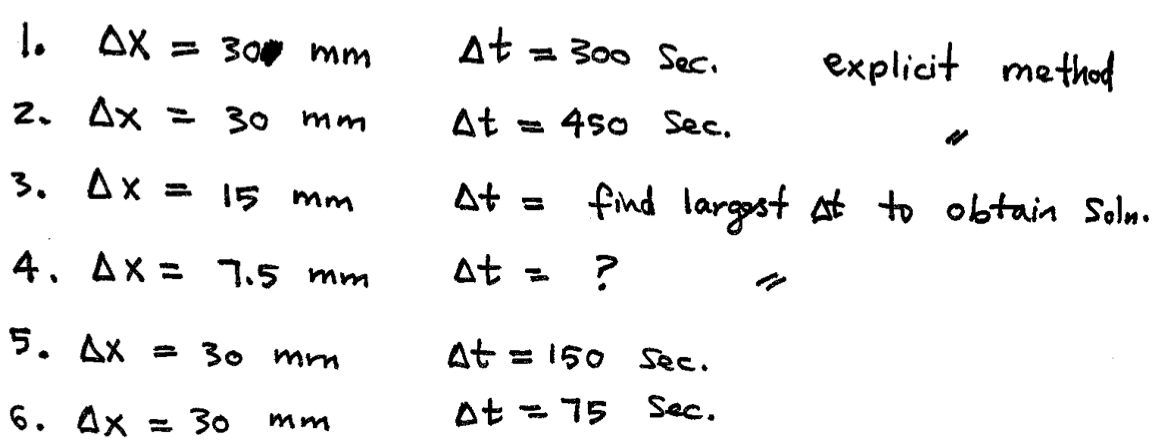 1. Δx = 30 mm Δt = 300 Sec. explicit method
2. Δx = 30 mm Δt = 450 Sec. "
3. Δx = 15 mm Δt = find largest Δt to obtain Soln.
4. Δx = 7.5 mm Δt = ? "
5. Δx = 30 mm Δt = 150 Sec.
6. Δx = 30 mm Δt = 75 Sec.